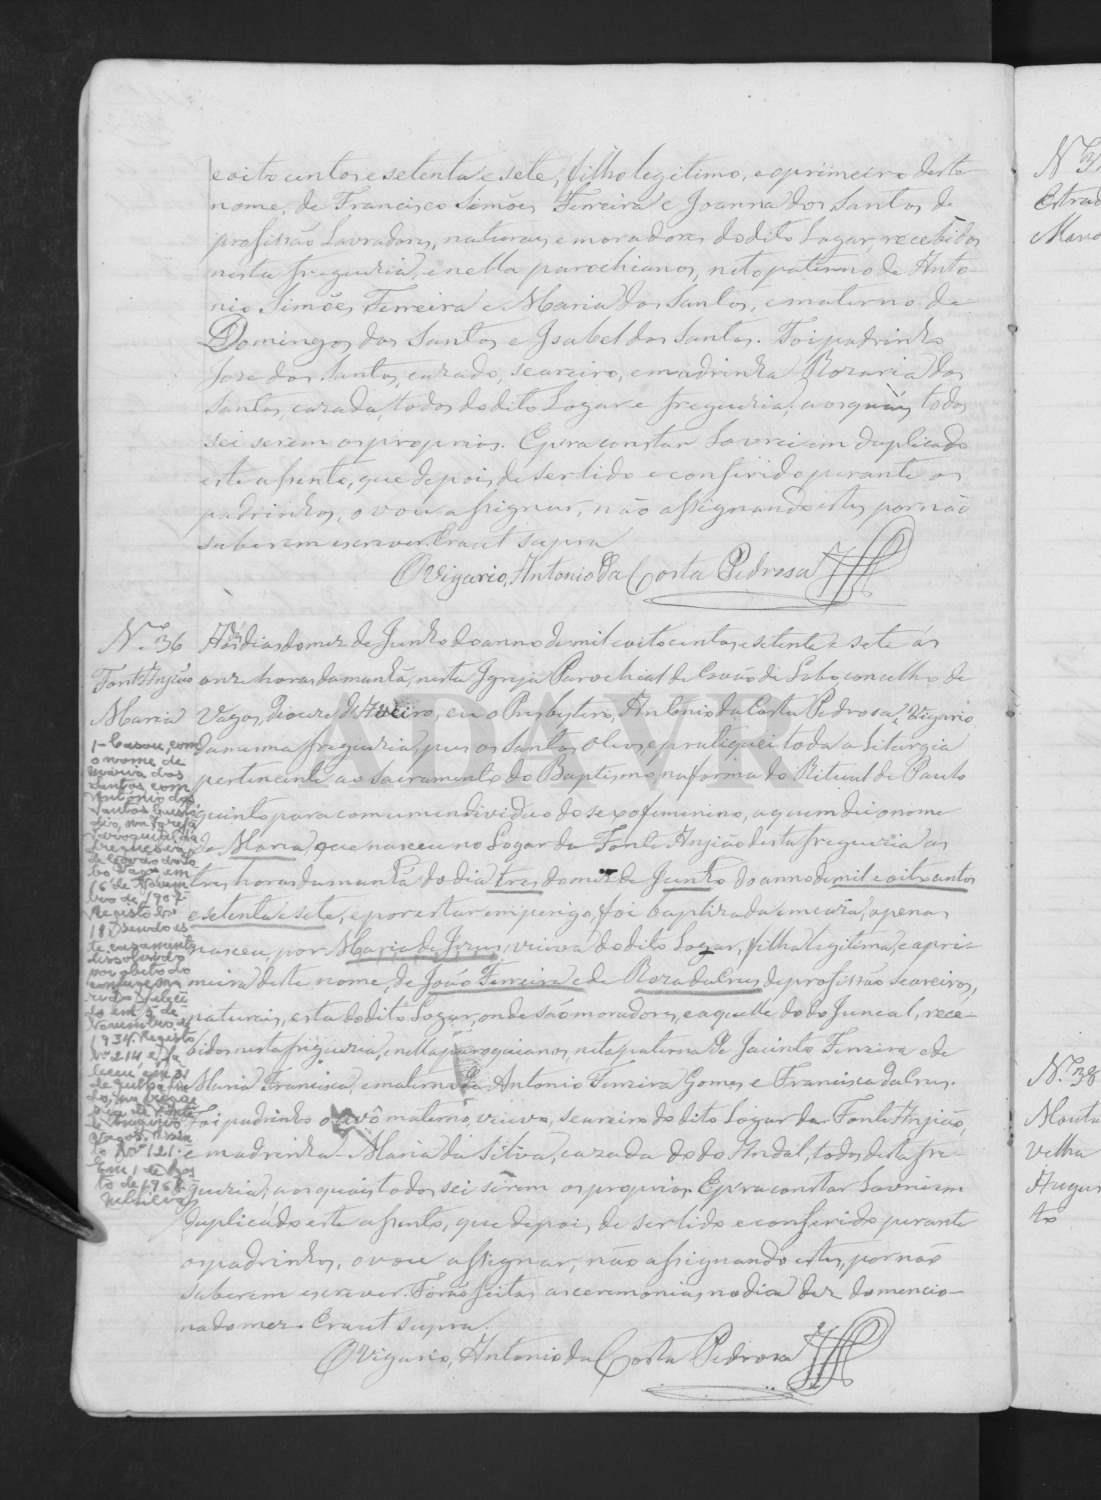 e oito centos e setenta e sete, filho legitimo, e o primeiro deste
nome, de Francisco Simões Ferreira e Joanna dos Santos de
profissão Lavradores, naturaes e moradores do dito Logar, recebidos
nesta freguezia, e nella parochianos, neto paterno de Anto-
nio Simões Ferreira e Maria dos Santos, e materno de
Domingos dos Santos e Isabel dos Santos. Foi padrinho
Jose dos Santos, cazado, seareiro, e madrinha Rozaria dos
Santos, cazada, todos do dito Logar e freguezia, aos quaes todos
sei serem os proprios. E p.ra constar Lavrei em duplicado
este assento, que depois de ser lido e conferido perante os
padrinhos, o vou assignar, não assignando estes por não
saberem escrever. Era ut supra
O Vigario, Antonio da Costa Pedrosa
N.º 36
Fonte Anjião
Maria
Aos dias do mez de Junho do anno de mil e oito centos e setenta e sete ás
onze horas da manhã, nesta Igreja Parochial de Covão do Lobo concelho de
Vagos, Diocese d'Aveiro, eu o Presbytero, Antonio da Costa Pedrosa, Vigario
da mesma freguezia, pus os Santos Oleos, e pratiquei toda a Liturgia
pertencente ao Sacramento do Baptismo, na forma do Ritual de Paulo
quinto para com um individuo do sexo femenino, a quem dei o nome
de Maria, que nasceu no Logar da Fonte Anjião desta freguezia as
tres horas da manhã do dia tres do mez de Junho do anno de mil e oito centos
e setenta e sete, e por estar em perigo, foi baptizada em caza, apenas
nasceu, por Maria de Jezus, viuva do dito Logar, filha legitima, e a pri-
meira deste nome, de João Ferreira e de Roza da Crus, de profissão seareiros,
naturaes, esta do dito Logar, onde são moradores, e aquelle do do Juncal, rece-
bidos nesta freguezia, e nella paroquianos, neta paterna de Jacinto Ferreira e de
Maria Francisca, e materna de Antonio Ferreira Gomes e Francisca da Crus.
Foi padrinho o avô materno, viuvo, seareiro do dito Logar da Fonte Anjião,
e madrinha Maria da Silva, cazada do do Andal, todos desta fre-
guezia, aos quaes todos sei serem os proprios. E p.ra constar Lavrei em
duplicado este assento, que depois de ser lido e conferido perante
os padrinhos, o vou assignar, não assignando estes, por não
saberem escrever. Forão feitas as ceremonias no dia dez do mencio-
nado mez. Era ut supra.
O Vigario, Antonio da Costa Pedrosa
1- Casou, com
o nome de
Maria dos
Santos com
António dos
Santos
na Igreja
paroquial da
freguesia
de Covão do Lo-
bo Vagos em
16 de Novem-
bro de 1907
Registo N.º
18 sendo es-
te casamento
dissolvido
por óbito do
conjuge ma-
rido faleci-
do em 5 de
Novembro de
1934. Registo
N.º 214 e fa-
leceu em 31
de Julho
do, na fregue-
sia de Fonte
de Angeão
Vagos.
to N.º 121.
Em 1 de Agos-
to de 196
ADAVR
N.º 3
Estrad
Mano
N.º 38
Monta
Velha
Augus-
to